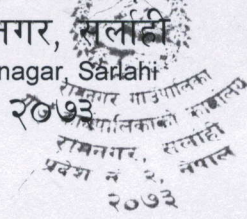 नगर, सर्लाही
nagar, Sarlahi
२०७३
रामनगर गाउँपालिका
गाउँपालिकाको कार्यालय
रामनगर, सर्लाही
प्रदेश नं २, नेपाल
२०७३